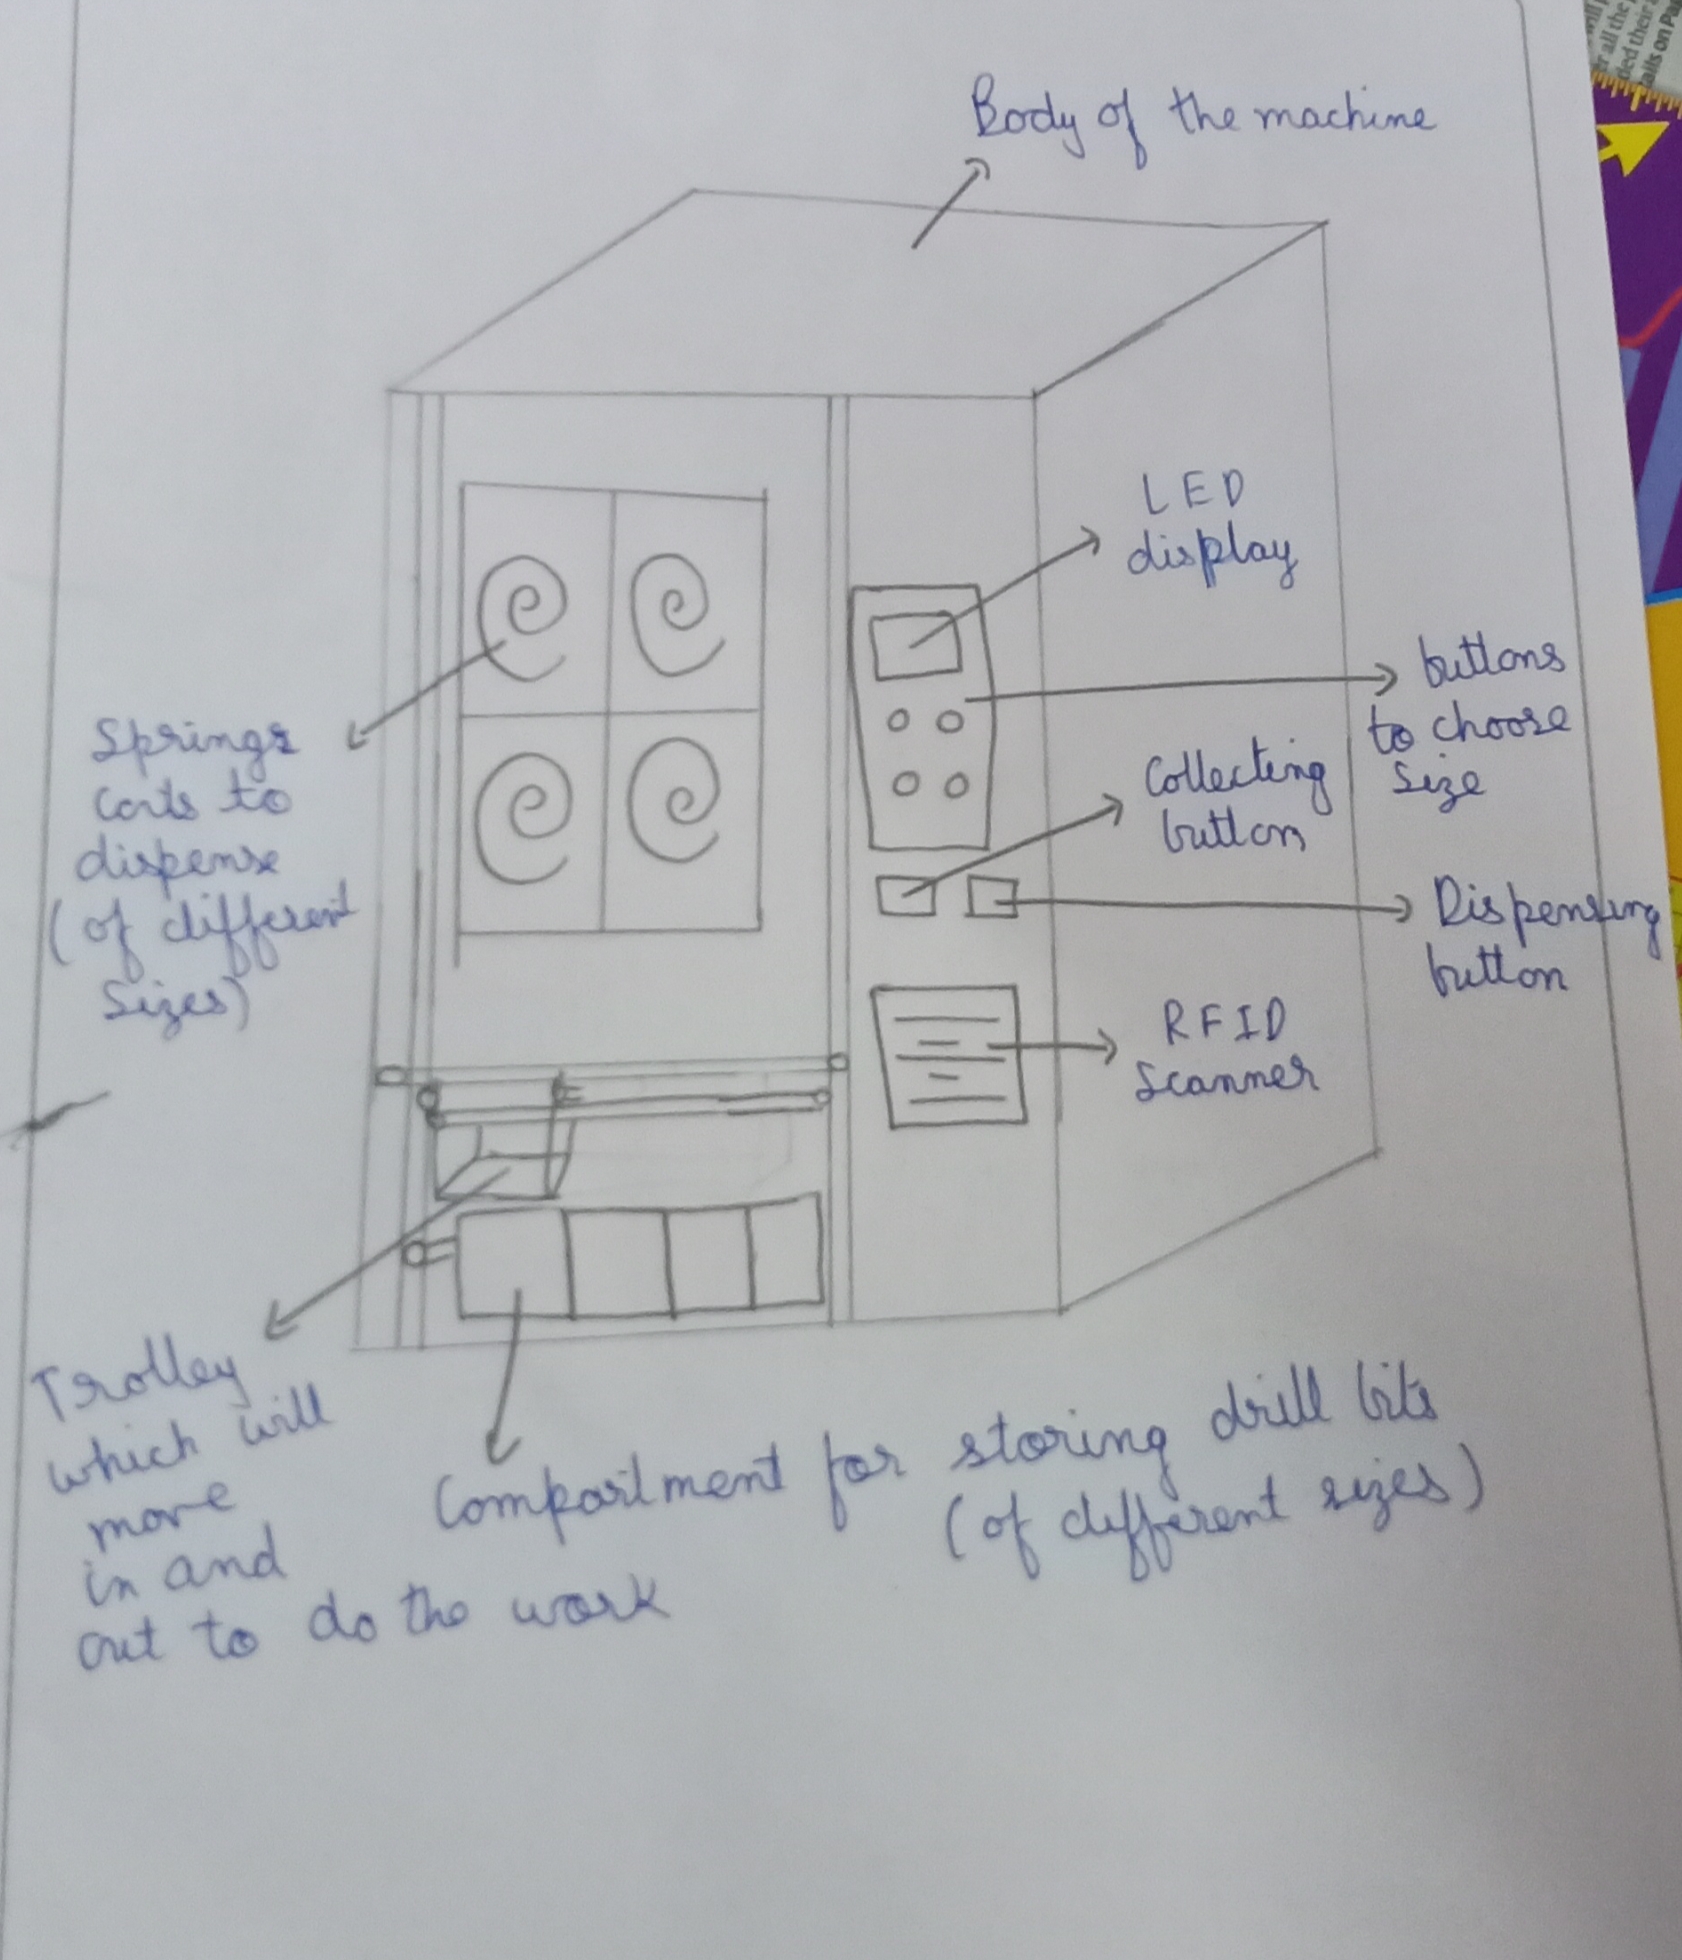 Body of the machine
LED
display
buttons
to choose
size
Collecting
button
Dispensing
button
RFID
Scanner
Springs
to
dispense
(of different
Sizes)
Trolley
which will
move
in and
out to do the work
Compartment for storing drill bits
(of different sizes)
all the
ded their